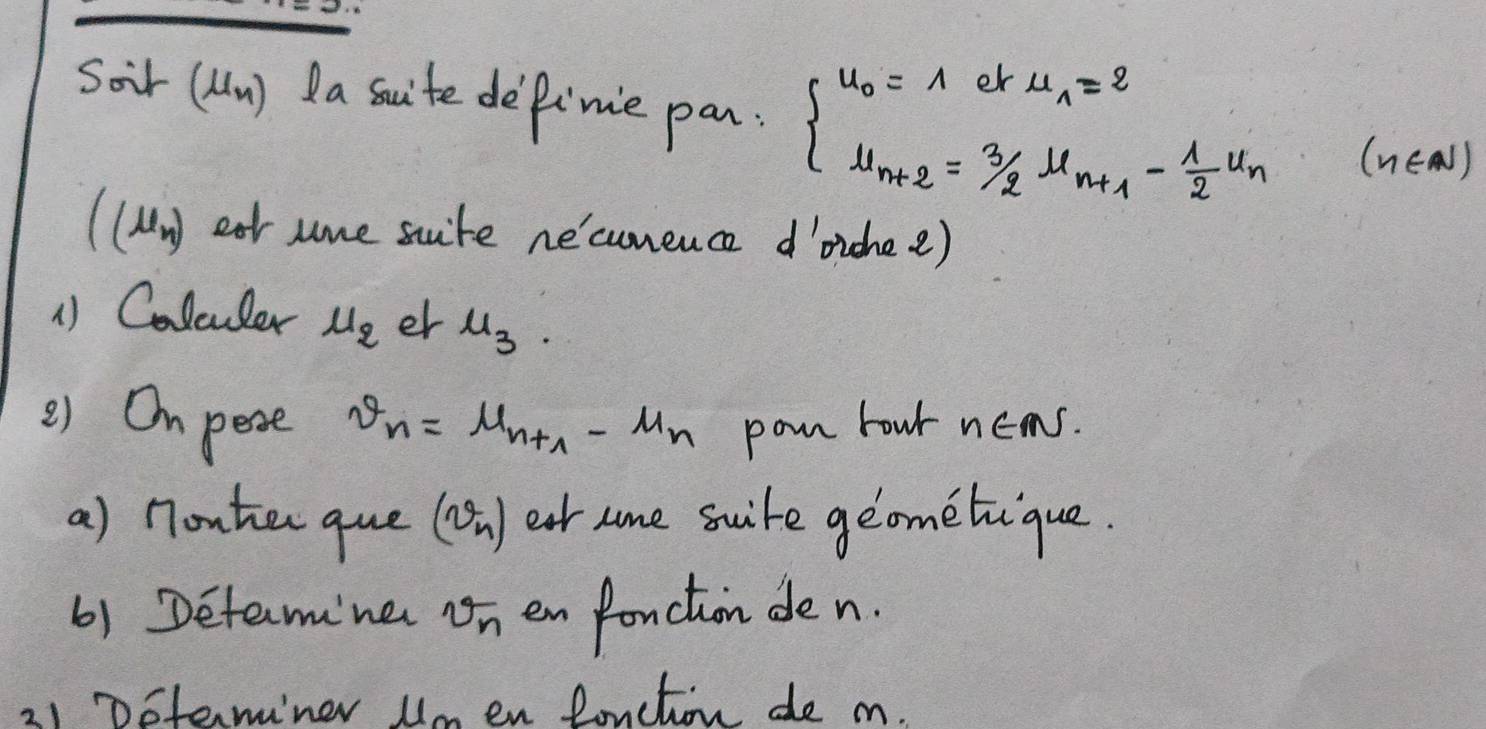 Soit (Un) la suite définie par : { u₀ = 1 et u₁ = 2
uₙ₊₂ = 3/2 uₙ₊₁ - 1/2 uₙ (n∈ℕ)
((Un) est une suite récurrence d'ordre 2)
1) Calculer u₂ et u₃.
2) On pose vₙ = uₙ₊₁ - uₙ pour tout n∈ℕ.
a) Montrer que (vₙ) est une suite géométrique.
b) Déterminer vₙ en fonction de n.
3) Déterminer uₙ en fonction de n.